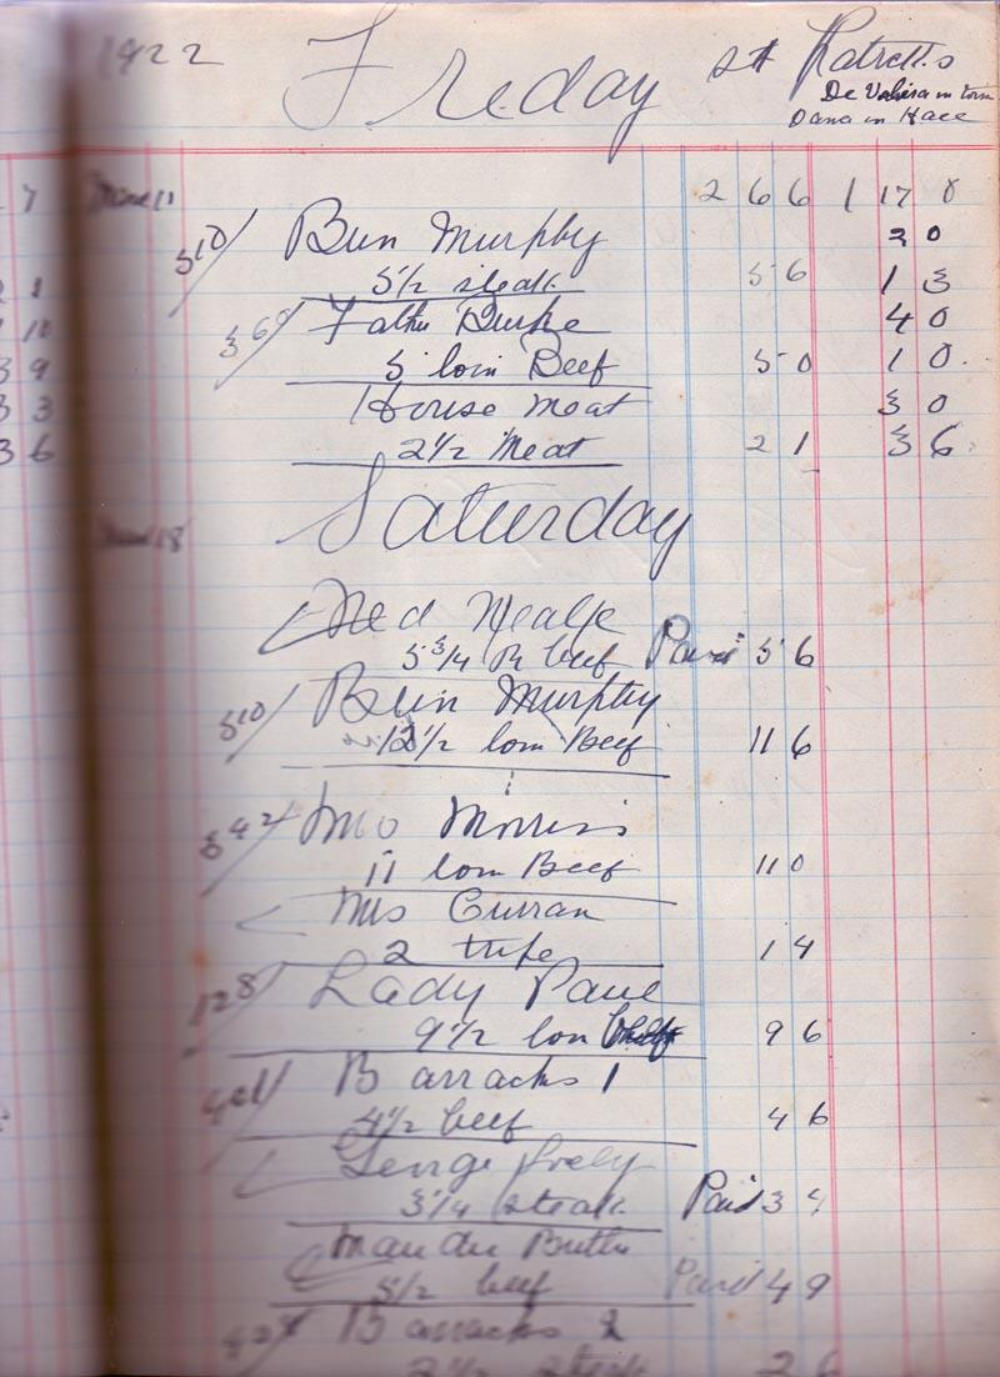 1922 Friday St Patrick's
De Valera in town
Dana in Hall
7 2 6 6 1 17 0
510 Bun Murphy 2 0
5 1/2 steak 5 6 1 3
1
360 Father Burke 4 0
10
5 loin Beef 5 0 1 0
9
House Meat 3 0
3 3
2 1/2 Meat 2 1 3 6
3 6
Saturday
18
Ned Nealfe
5 3/4 R beef Paid 5 6
510 Bun Murphy
12 1/2 loin Beef 11 6
342 Morriss
11 loin Beef 11 0
Mrs Curran
2 tripe 1 4
128 Lady Paue
9 1/2 loin 9 6
401 Barracks 1
4 1/2 beef 4 6
George
3 1/4 steak Paid 3 4
Butler
5 1/2 beef Paid 4 9
Barracks 2
2 1/2 steak 2 6